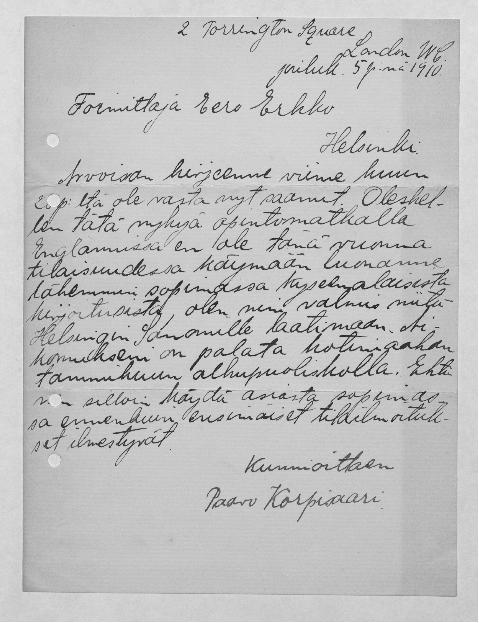 2 Torrington Square
London W.C.
jouluk. 5 p:nä 1910
Toimittaja Eero Erkko
Helsinki.
Arvoisan kirjeenne viime kuun
2 p:ltä ole vasta nyt saanut. Oleskel-
len tätä nykyä opintomatkalla
Englannissa en ole tänä vuonna
tilaisuudessa käymään luonanne
lähemmin sopimassa kyseenalaisista
kirjoituksista, olen niitä valmis
Helsingin Sanomille laatimaan. Ai-
komukseni on palata kotimaahan
tammikuun alkupuoliskolla. Ehti-
nen silloin käydä asiasta sopimas-
sa ennenkuin ensimäiset tilailmoituk-
set ilmestyvät.
Kunnioittaen
Paavo Korpisaari.